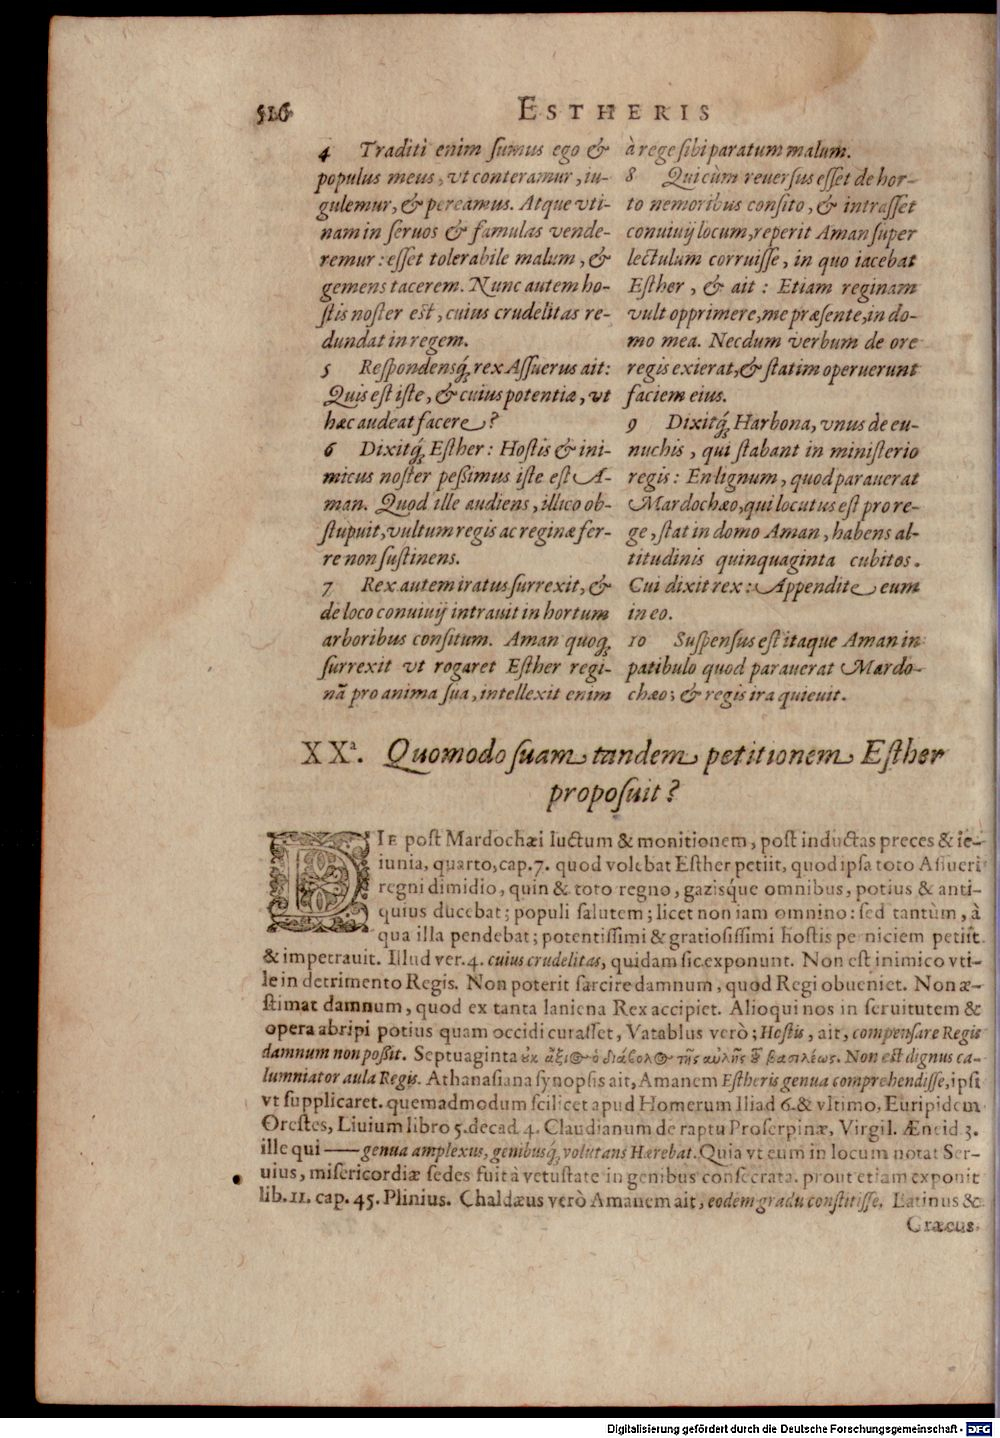 526
ESTHERIS
4 Traditi enim ſumus ego &
populus meus, vt conteramur, iu-
gulemur, & pereamus. Atque vti-
nam in ſeruos & famulas vende-
remur: eſſet tolerabile malum, &
gemens tacerem. Nunc autem ho-
ſtis noſter eſt, cuius crudelitas re-
dundat in regem.
5 Reſpondensq́, rex Aſſuerus ait:
Quis eſt iſte, & cuius potentiæ, vt
hæc audeat facere?
6 Dixitq́, Eſther: Hoſtis & ini-
micus noſter peßimus iſte eſt A-
man. Quod ille audiens, illico ob-
ſtupuit, vultum regis ac reginæ fer-
re non ſuſtinens.
7 Rex autem iratus ſurrexit, &
de loco conuiuij intrauit in hortum
arboribus conſitum. Aman quoq́,
ſurrexit vt rogaret Eſther regi-
nã pro anima ſua, intellexit enim
à rege ſibi paratum malum.
8 Qui cùm reuerſus eſſet de hor-
to nemoribus conſito, & intraſſet
conuiuij locum, reperit Aman ſuper
lectulum corruiſſe, in quo iacebat
Eſther, & ait: Etiam reginam
vult opprimere, me præſente, in do-
mo mea. Necdum verbum de ore
regis exierat, & ſtatim operuerunt
faciem eius.
9 Dixitq́, Harbona, vnus de eu-
nuchis, qui ſtabant in miniſterio
regis: En lignum, quod parauerat
Mardochæo, qui locutus eſt pro re-
ge, ſtat in domo Aman, habens al-
titudinis quinquaginta cubitos.
Cui dixit rex: Appendite eum
in eo.
10 Suſpenſus eſt itaque Aman in
patibulo quod parauerat Mardo-
chæo; & regis ira quieuit.
XXª. Quomodo ſuam tandem petitionem Eſther
propoſuit?
DIE poſt Mardochæi luctum & monitionem, poſt inductas preces & ie-
iunia, quarto, cap. 7. quod volebat Eſther petiit, quod ipſa toto Aſſueri
regni dimidio, quin & toto regno, gazisq́ue omnibus, potius & anti-
quius ducebat; populi ſalutem; licet non iam omnino: ſed tantùm, à
qua illa pendebat; potentiſſimi & gratioſiſſimi hoſtis perniciem petiit
& impetrauit. Illud ver. 4. cuius crudelitas, quidam ſic exponunt. Non eſt inimico vti-
le in detrimento Regis. Non poterit ſarcire damnum, quod Regi obueniet. Non æ-
ſtimat damnum, quod ex tanta laniena Rex accipiet. Alioqui nos in ſeruitutem &
opera abripi potius quam occidi curaſſet, Vatablus verò; Hoſtis, ait, compenſare Regis
damnum non poßit. Septuaginta οὐκ ἄξιος ὁ διάβολος τῆς αὐλῆς τοῦ βασιλέως. Non eſt dignus ca-
lumniator aula Regis. Athanaſiana ſynopſis ait, Amanem Eſtheris genua comprehendiſſe, ipſi
vt ſupplicaret. quemadmodum ſcilicet apud Homerum Iliad 6. & vltimo, Euripidem
Oreſtes, Liuium libro 5. decad. 4. Claudianum de raptu Proſerpinæ, Virgil. Æneid 3.
ille qui —— genua amplexus, genibusq́, volutans Hærebat. Quia vt eum in locum notat Ser-
uius, miſericordiæ ſedes fuit à vetuſtate in genibus conſecrata. prout etiam exponit
lib. 11. cap. 45. Plinius. Chaldæus verò Amanem ait, eodem gradu conſtitiſſe. Latinus &
Græcus.
Digitalisierung gefördert durch die Deutsche Forschungsgemeinschaft - DFG